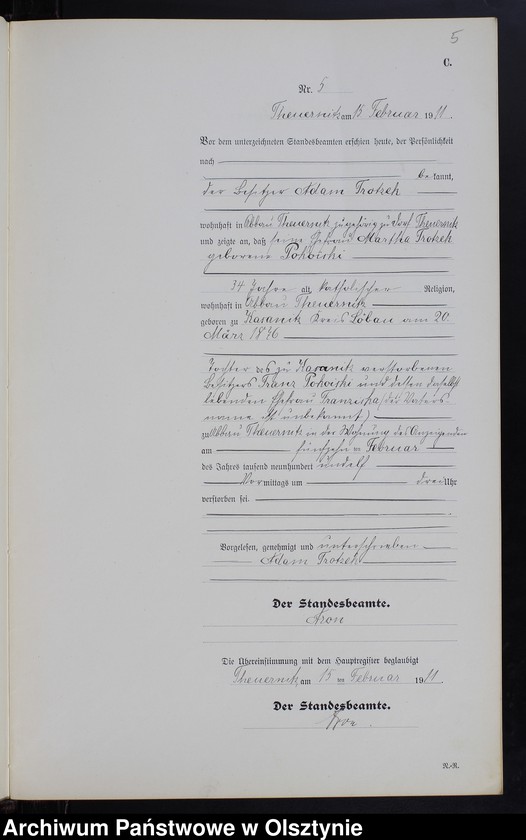 5
C.
Nr. 5
Theuernitz am 15 Februar 1911.
Vor dem unterzeichneten Standesbeamten erschien heute, der Persönlichkeit
nach
bekannt,
der Besitzer Adam Trotzeh
wohnhaft in Abbau Theuernitz zugehörig zu Dorf Theuernitz
und zeigte an, daß seine Ehefrau Martha Trotzeh
geborene
34 Jahre alt, katholischer Religion,
wohnhaft in Abbau Theuernitz
geboren zu Kreis Löbau am 20.
März 1876
Tochter des zu verstorbenen
Besitzers Franz und dessen daselbst
lebenden Ehefrau Franziska (der Vaters-
name ist unbekannt)
zu Abbau Theuernitz in der Wohnung des Anzeigenden
am fünfzehn ten Februar
des Jahres tausend neunhundert und elf
Vormittags um drei Uhr
verstorben sei.
Vorgelesen, genehmigt und unterschrieben
Adam Trotzeh
Der Standesbeamte.
Die Übereinstimmung mit dem Hauptregister beglaubigt
Theuernitz am 15 ten Februar 1911.
Der Standesbeamte.
N.-N.
Archiwum Państwowe w Olsztynie